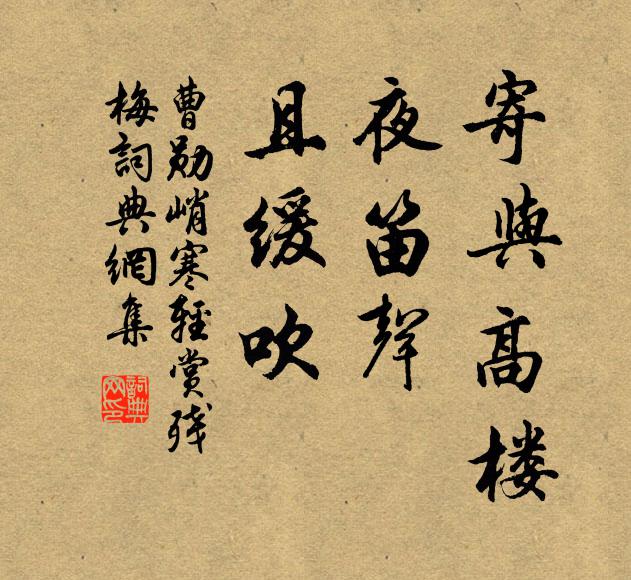 寄與高楼
夜笛聲
且緩吹
曹勛峭寒輕賞残
梅詞典網集
詞典
网印